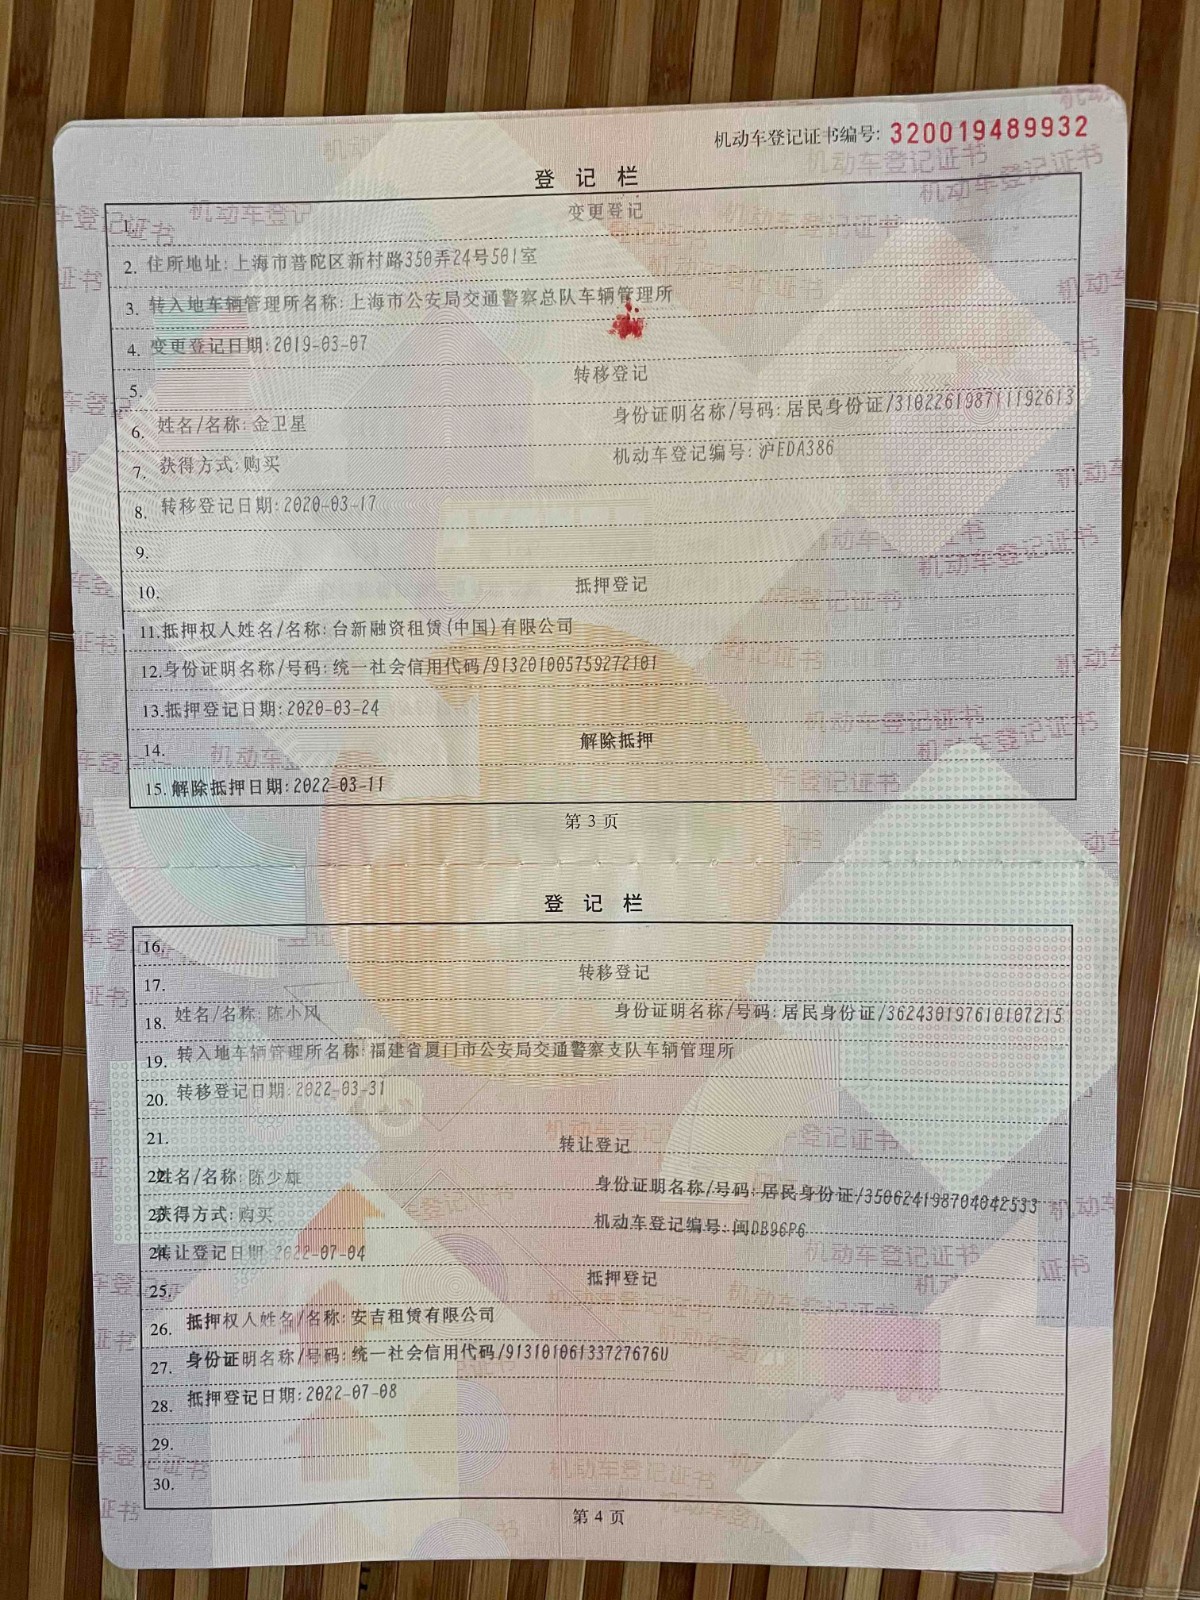 机动车登记证书编号: 320019489932
登 记 栏
1. 变更登记
2. 住所地址:上海市普陀区新村路350弄24号501室
3. 转入地车辆管理所名称:上海市公安局交通警察总队车辆管理所
4. 变更登记日期:2019-03-07
5. 转移登记
6. 姓名/名称:金卫星 身份证明名称/号码:居民身份证/310226198711192613
7. 获得方式:购买 机动车登记编号:沪EDA386
8. 转移登记日期:2020-03-17
9.
10. 抵押登记
11.抵押权人姓名/名称:台新融资租赁(中国)有限公司
12.身份证明名称/号码:统一社会信用代码/913201005759272101
13.抵押登记日期:2020-03-24
14. 解除抵押
15.解除抵押日期:2022-03-11
第 3 页
登 记 栏
16.
17. 转移登记
18. 姓名/名称:陈小风 身份证明名称/号码:居民身份证/362430197610107215
19. 转入地车辆管理所名称:福建省厦门市公安局交通警察支队车辆管理所
20. 转移登记日期:2022-03-31
21. 转让登记
22. 姓名/名称:陈少雄 身份证明名称/号码:居民身份证/350624198704042533
23. 获得方式:购买 机动车登记编号:闽DB96P6
24. 转让登记日期:2022-07-04
25. 抵押登记
26. 抵押权人姓名/名称:安吉租赁有限公司
27. 身份证明名称/号码:统一社会信用代码/91310106133727676U
28. 抵押登记日期:2022-07-08
29.
30.
第 4 页